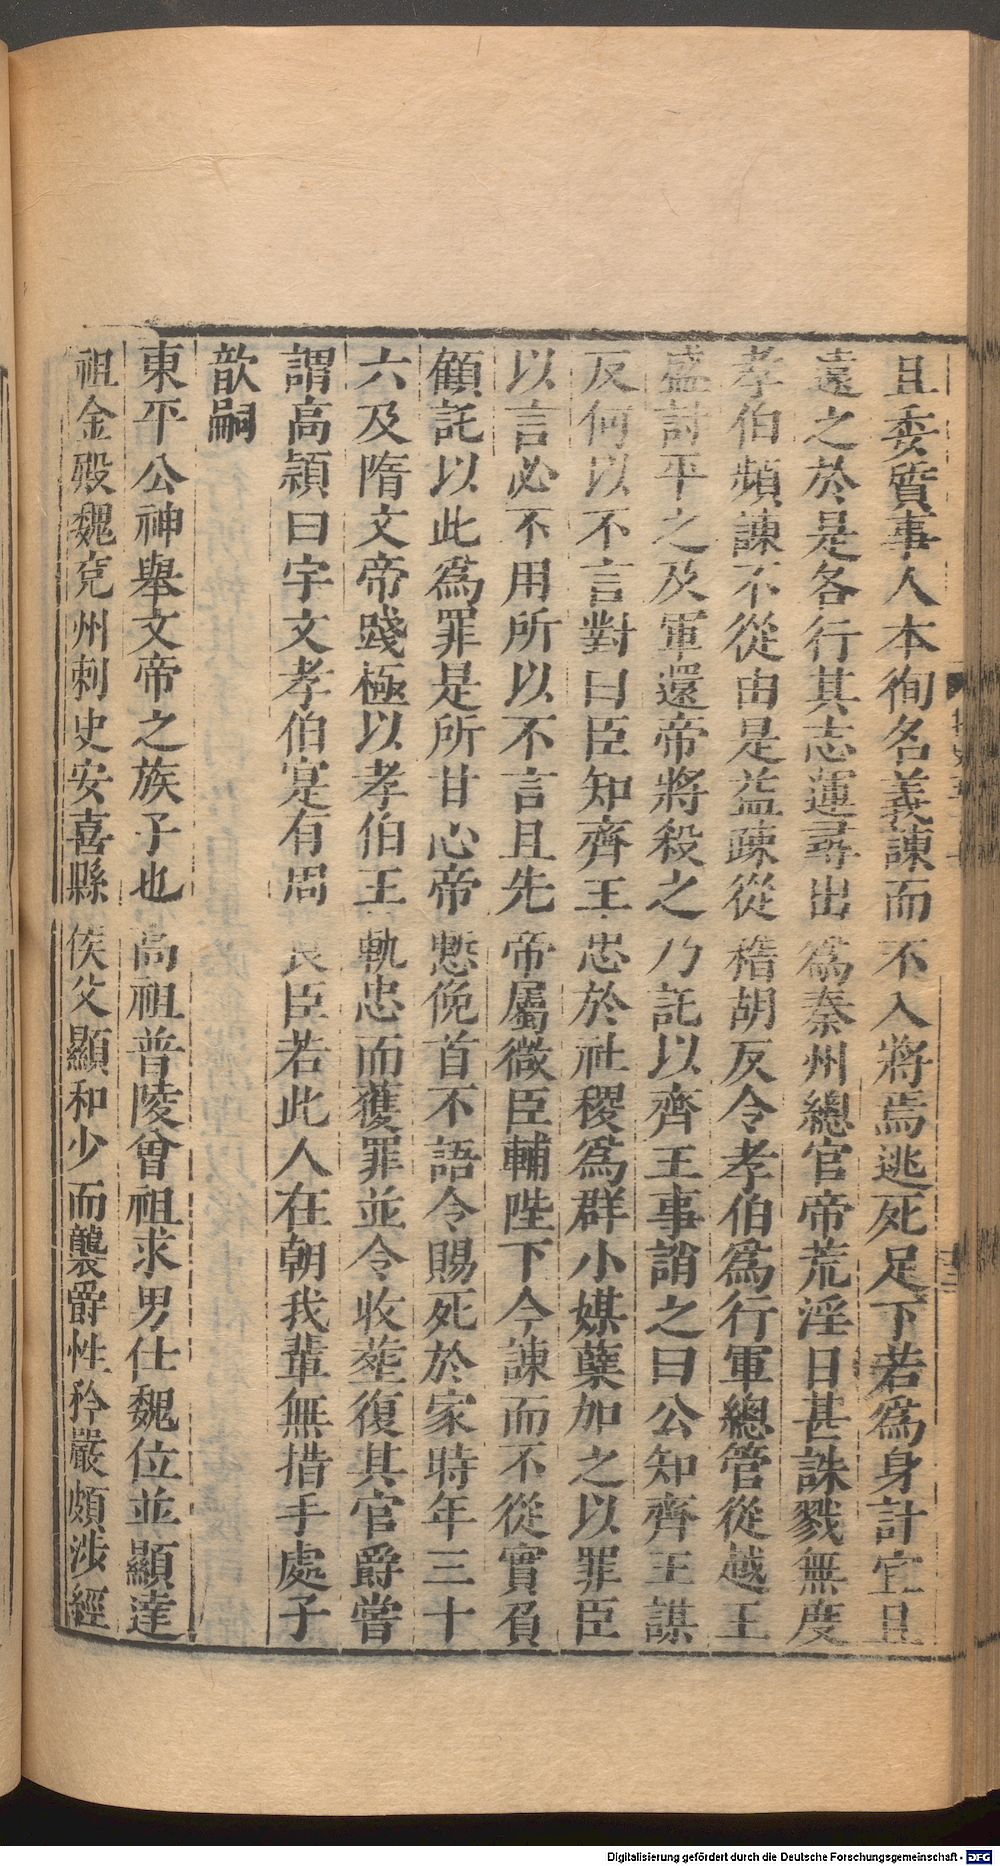 且委質事人本徇名義諫而不入將焉逃死足下若爲身計宜且
遠之於是各行其志運尋出爲秦州總官帝荒淫日甚誅戮無度
孝伯頻諫不從由是益疎從稽胡反令孝伯爲行軍總管從越王
盛討平之及軍還帝將殺之乃託以齊王事誚之曰公知齊王謀
反何以不言對曰臣知齊王忠於社稷爲群小媒蘖加之以罪臣
以言必不用所以不言且先帝屬微臣輔陛下今諫而不從實負
顧託以此爲罪是所甘心帝慙俛首不語令賜死於家時年三十
六及隋文帝踐極以孝伯王軌忠而獲罪並令收葬復其官爵嘗
謂高頴曰宇文孝伯寔有周良臣若此人在朝我輩無措手處子
歆嗣
東平公神舉文帝之族子也高祖普陵曾祖求男仕魏位並顯達
祖金殿魏兗州刺史安喜縣侯父顯和少而襲爵性矜嚴頗涉經
Digitalisierung gefördert durch die Deutsche Forschungsgemeinschaft - DFG